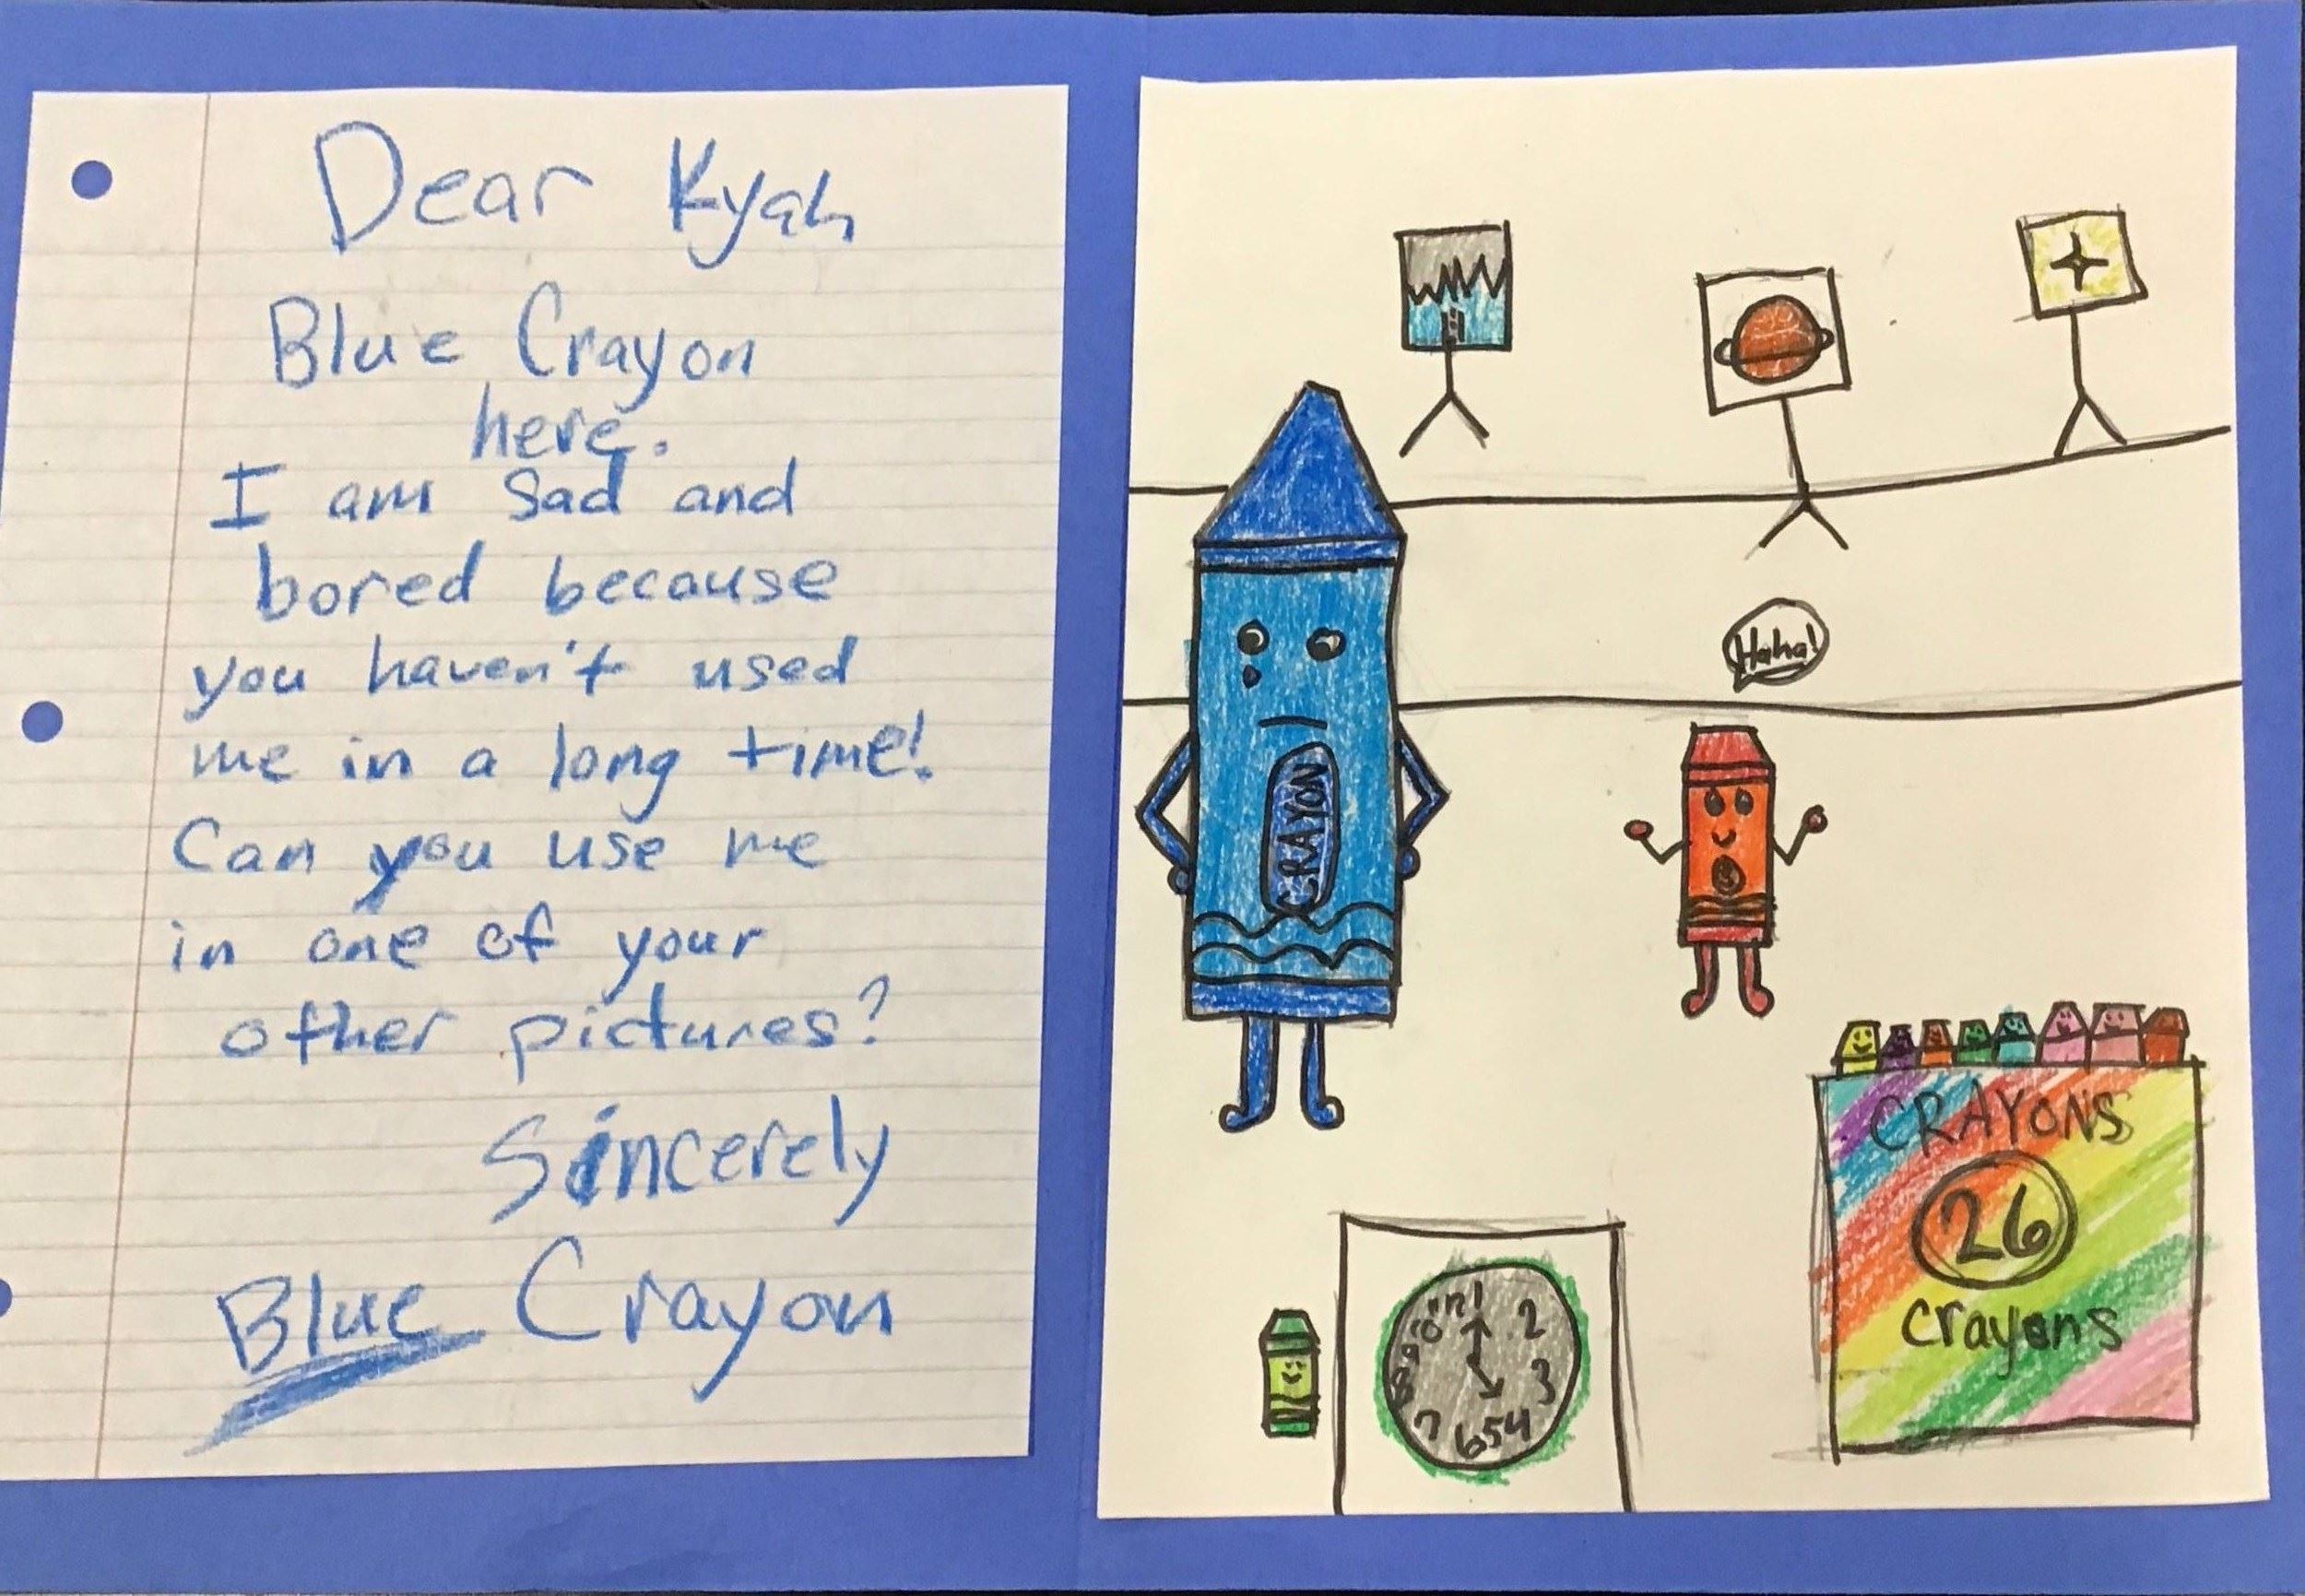 Dear Kyah
Blue Crayon
here.
I am sad and
bored because
you haven't used
me in a long time!
Can you use me
in one of your
other pictures?
Sincerely
Blue Crayon
Haha!
CRAYON
CRAYONS
26
crayons
12 1
2
3
4
5
6
7
8
9
10